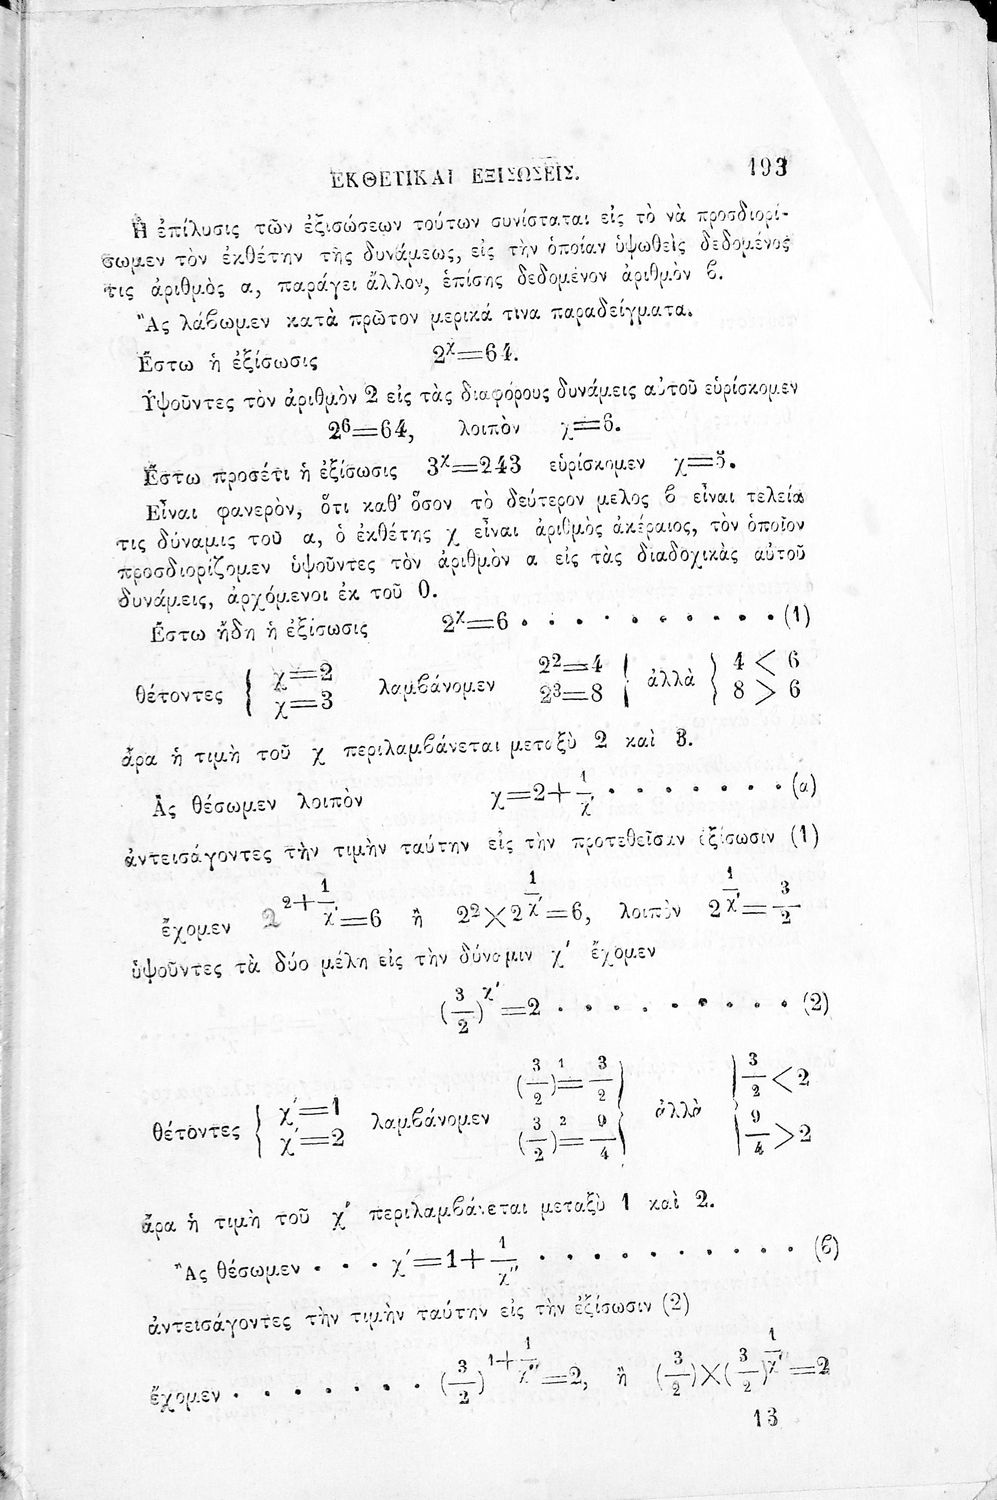 ΕΚΘΕΤΙΚΑΙ ΕΞΙΣΩΣΕΙΣ. 193
Ἡ ἐπίλυσις τῶν ἐξισώσεων τούτων συνίσταται εἰς τὸ νὰ προσδιορί-
σωμεν τὸν ἐκθέτην τῆς δυνάμεως, εἰς τὴν ὁποίαν ὑψωθεὶς δεδομένος
τις ἀριθμὸς α, παράγει ἄλλον, ἐπίσης δεδομένον ἀριθμὸν ϐ.
Ἂς λάϐωμεν κατὰ πρῶτον μερικά τινα παραδείγματα.
Ἔστω ἡ ἐξίσωσις 2^χ=64.
Ὑψοῦντες τὸν ἀριθμὸν 2 εἰς τὰς διαφόρους δυνάμεις αὐτοῦ εὑρίσκομεν
2^6=64, λοιπὸν χ=6.
Ἔστω προσέτι ἡ ἐξίσωσις 3^χ=243 εὑρίσκομεν χ=5.
Εἶναι φανερὸν, ὅτι καθ' ὅσον τὸ δεύτερον μελος ϐ εἶναι τελεία
τις δύναμις τοῦ α, ὁ ἐκθέτης χ εἶναι ἀριθμὸς ἀκέραιος, τὸν ὁποῖον
προσδιορίζομεν ὑψοῦντες τὸν ἀριθμὸν α εἰς τὰς διαδοχικὰς αὐτοῦ
δυνάμεις, ἀρχόμενοι ἐκ τοῦ 0.
Ἔστω ἤδη ἡ ἐξίσωσις 2^χ=6 . . . . . . . . . . (1)
θέτοντες { χ=2 χ=3 λαμϐάνομεν 2^2=4 2^3=8 } ἀλλὰ } 4 < 6 8 > 6
ἆρα ἡ τιμὴ τοῦ χ περιλαμϐάνεται μεταξὺ 2 καὶ 3.
Ἂς θέσωμεν λοιπὸν χ=2+1/χ' . . . . . . . (α)
ἀντεισάγοντες τὴν τιμὴν ταύτην εἰς τὴν προτεθεῖσαν ἐξίσωσιν (1)
ἔχομεν 2^(2+1/χ')=6 ἢ 2^2×2^(1/χ')=6, λοιπὸν 2^(1/χ')=3/2
ὑψοῦντες τὰ δύο μέλη εἰς τὴν δύναμιν χ' ἔχομεν
(3/2)^χ'=2 . . . . . . . . . (2)
θέτοντες { χ'=1 χ'=2 λαμϐάνομεν (3/2)^1=3/2 (3/2)^2=9/4 } ἀλλὰ } 3/2<2 9/4>2
ἆρα ἡ τιμὴ τοῦ χ' περιλαμϐάνεται μεταξὺ 1 καὶ 2.
Ἂς θέσωμεν . . . χ'=1+1/χ'' . . . . . . . . . . (ϐ)
ἀντεισάγοντες τὴν τιμὴν ταύτην εἰς τὴν ἐξίσωσιν (2)
ἔχομεν . . . . . . . (3/2)^(1+1/χ'')=2, ἢ (3/2)×(3/2)^(1/χ'')=2
13